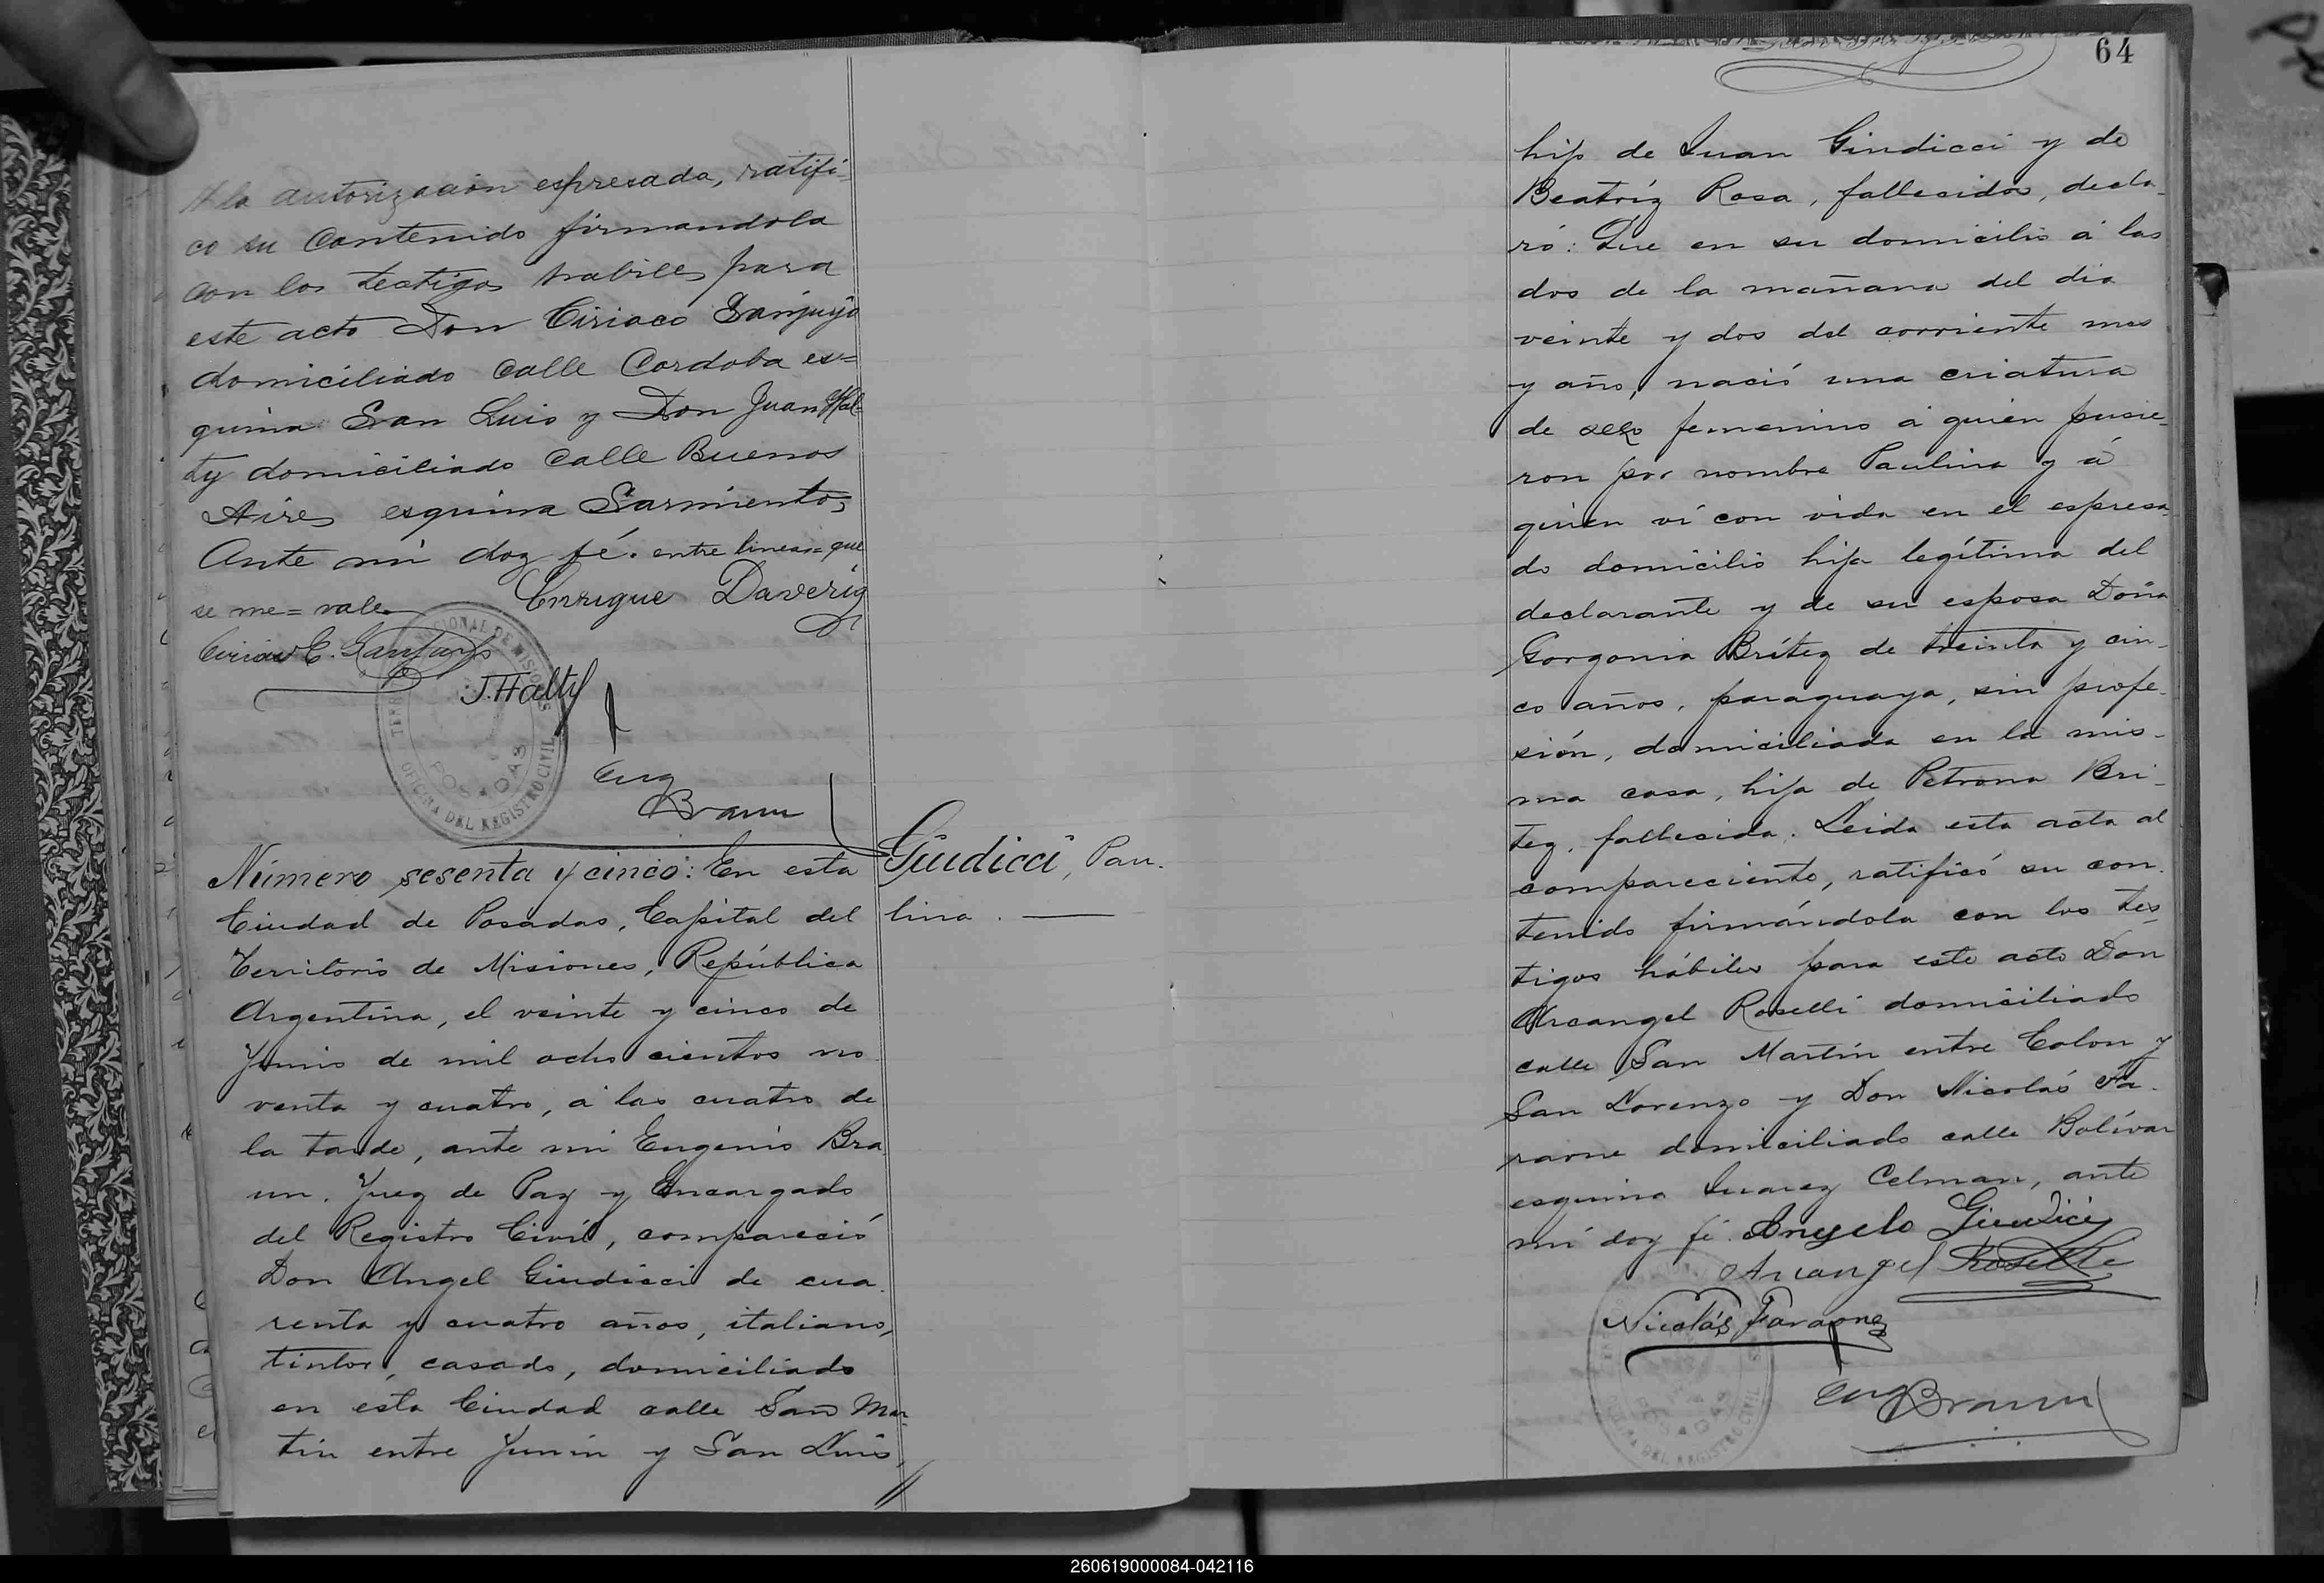 á la autorizacion espresada, ratifi-
co su contenido firmandola
con los testigos habiles para
este acto Don Ciriaco Sanjurjo
domiciliado calle Cordoba es=
quina San Luis y Don Juan Hal-
ty domiciliado calle Buenos
Aires esquina Sarmiento,
Ante mi doy fé. entre lineas= que
se me=vale
Enrique Daveriz
Ciriaco C. Sanjurjo
J. Halty
Eug
Braun
TERRITORIO NACIONAL DE MISIONES
POSADAS
OFICINA DEL REGISTRO CIVIL
Giudicci, Pau-
lina.
Número sesenta y cinco: En esta
Ciudad de Posadas, Capital del
Territorio de Misiones, República
Argentina, el veinte y cinco de
Junio de mil ocho cientos no
venta y cuatro, á las cuatro de
la tarde, ante mi Eugenio Bra
un. Juez de Paz y Encargado
del Registro Civil, compareció
Don Angel Giudicci de cua-
renta y cuatro años, italiano,
tintor, casado, domiciliado
en esta Ciudad calle San Mar-
tin entre Junin y San Luis,
64
hijo de Juan Giudicci y de
Beatriz Rosa, fallecidos, decla-
ró: Que en su domicilio á las
dos de la mañana del dia
veinte y dos del corriente mes
y año, nació una criatura
de sexo femenino á quien pusie-
ron por nombre Paulina y á
quien ví con vida en el espresa
do domicilio hija legítima del
declarante y de su esposa Doña
Gorgonia Brítez de treinta y cin-
co años, paraguaya, sin profe-
sión, domiciliada en la mis-
ma casa, hija de Petrona Bri-
tez, fallecida. Leida esta acta al
compareciente, ratificó su con-
tenido firmándola con los tes-
tigos hábiles para este acto Don
Arcangel Roselli domiciliado
calle San Martín entre Colon y
San Lorenzo y Don Nicolás Fa-
raone domiciliado calle Bolívar
esquina Juarez Celman, ante
mí doy fé. Angelo Giudici
Arcangel Roselli
Nicolás Faraone
Eug Braun
POSADAS
OFICINA DEL REGISTRO CIVIL
260619000084-042116